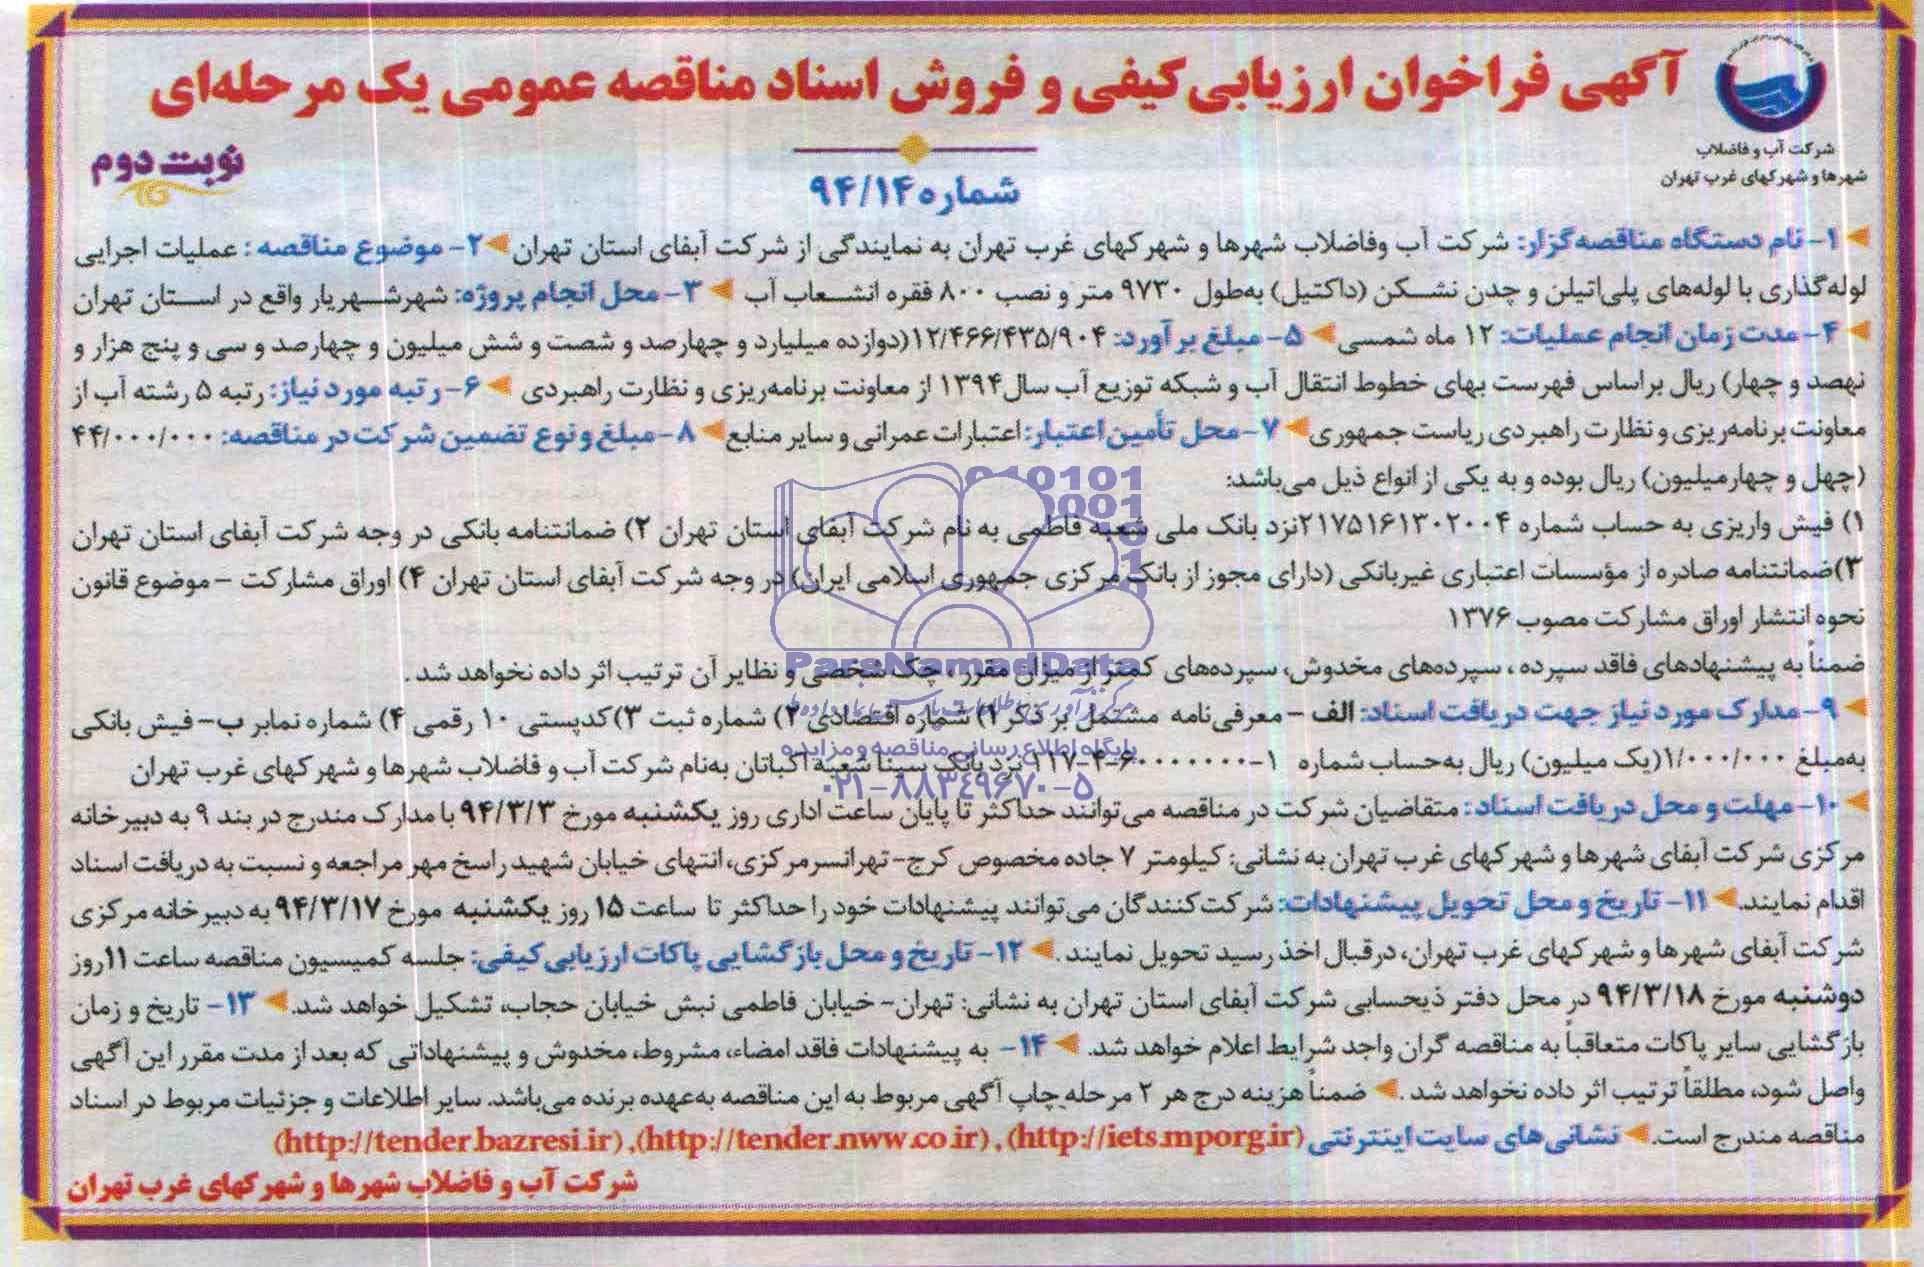 آگهی فراخوان ارزیابی کیفی و فروش اسناد مناقصه عمومی یک مرحله‌ای
شرکت آب و فاضلاب
شهرها و شهرکهای غرب تهران
نوبت دوم
شماره ۹۴/۱۴
۱- نام دستگاه مناقصه‌گزار: شرکت آب وفاضلاب شهرها و شهرکهای غرب تهران به نمایندگی از شرکت آبفای استان تهران ۲- موضوع مناقصه : عملیات اجرایی
لوله‌گذاری با لوله‌های پلی‌اتیلن و چدن نشکن (داکتیل) به‌طول ۹۷۳۰ متر و نصب ۸۰۰ فقره انشعاب آب ۳- محل انجام پروژه: شهرشهریار واقع در استان تهران
۴- مدت زمان انجام عملیات: ۱۲ ماه شمسی ۵- مبلغ برآورد: ۱۲/۴۶۶/۴۳۵/۹۰۴(دوازده میلیارد و چهارصد و شصت و شش میلیون و چهارصد و سی و پنج هزار و
نهصد و چهار) ریال براساس فهرست بهای خطوط انتقال آب و شبکه توزیع آب سال۱۳۹۴ از معاونت برنامه‌ریزی و نظارت راهبردی ۶- رتبه مورد نیاز: رتبه ۵ رشته آب از
معاونت برنامه‌ریزی و نظارت راهبردی ریاست جمهوری ۷- محل تأمین اعتبار: اعتبارات عمرانی و سایر منابع ۸- مبلغ و نوع تضمین شرکت در مناقصه: ۴۴/۰۰۰/۰۰۰
(چهل و چهارمیلیون) ریال بوده و به یکی از انواع ذیل می‌باشد:
۱) فیش واریزی به حساب شماره ۲۱۷۵۱۶۱۳۰۲۰۰۴نزد بانک ملی شعبه فاطمی به نام شرکت آبفای استان تهران ۲) ضمانتنامه بانکی در وجه شرکت آبفای استان تهران
۳)ضمانتنامه صادره از مؤسسات اعتباری غیربانکی (دارای مجوز از بانک مرکزی جمهوری اسلامی ایران) در وجه شرکت آبفای استان تهران ۴) اوراق مشارکت - موضوع قانون
نحوه انتشار اوراق مشارکت مصوب ۱۳۷۶
ضمناً به پیشنهادهای فاقد سپرده ، سپرده‌های مخدوش، سپرده‌های کمتر از میزان مقرر ، چک شخصی و نظایر آن ترتیب اثر داده نخواهد شد .
۹- مدارک مورد نیاز جهت دریافت اسناد: الف - معرفی‌نامه مشتمل بر ذکر ۱) شماره اقتصادی ۲) شماره ثبت ۳)کدپستی ۱۰ رقمی ۴) شماره نمابر ب- فیش بانکی
به‌مبلغ ۱/۰۰۰/۰۰۰(یک میلیون) ریال به‌حساب شماره نزد بانک سینا شعبه اکباتان به‌نام شرکت آب و فاضلاب شهرها و شهرکهای غرب تهران
۱۰- مهلت و محل دریافت اسناد : متقاضیان شرکت در مناقصه می‌توانند حداکثر تا پایان ساعت اداری روز یکشنبه مورخ ۹۴/۳/۳ با مدارک مندرج در بند ۹ به دبیرخانه
مرکزی شرکت آبفای شهرها و شهرکهای غرب تهران به نشانی: کیلومتر ۷ جاده مخصوص کرج- تهرانسرمرکزی، انتهای خیابان شهید راسخ مهر مراجعه و نسبت به دریافت اسناد
اقدام نمایند. ۱۱- تاریخ و محل تحویل پیشنهادات: شرکت‌کنندگان می‌توانند پیشنهادات خود را حداکثر تا ساعت ۱۵ روز یکشنبه مورخ ۹۴/۳/۱۷ به دبیرخانه مرکزی
شرکت آبفای شهرها و شهرکهای غرب تهران، درقبال اخذ رسید تحویل نمایند . ۱۲- تاریخ و محل بازگشایی پاکات ارزیابی کیفی: جلسه کمیسیون مناقصه ساعت ۱۱روز
دوشنبه مورخ ۹۴/۳/۱۸ در محل دفتر ذیحسابی شرکت آبفای استان تهران به نشانی: تهران- خیابان فاطمی نبش خیابان حجاب، تشکیل خواهد شد. ۱۳- تاریخ و زمان
بازگشایی سایر پاکات متعاقباً به مناقصه گران واجد شرایط اعلام خواهد شد. ۱۴- به پیشنهادات فاقد امضاء، مشروط، مخدوش و پیشنهاداتی که بعد از مدت مقرر این آگهی
واصل شود، مطلقاً ترتیب اثر داده نخواهد شد . ضمناً هزینه درج هر ۲ مرحله چاپ آگهی مربوط به این مناقصه به‌عهده برنده می‌باشد. سایر اطلاعات و جزئیات مربوط در اسناد
مناقصه مندرج است. نشانی‌های سایت اینترنتی (http://iets.mporg.ir) , (http://tender.nww.co.ir), (http://tender.bazresi.ir)
شرکت آب و فاضلاب شهرها و شهرکهای غرب تهران
ParsNamadData
پایگاه اطلاع رسانی مناقصه و مزایده
۰۲۱-۸۸۳۴۹۶۷۰-۵